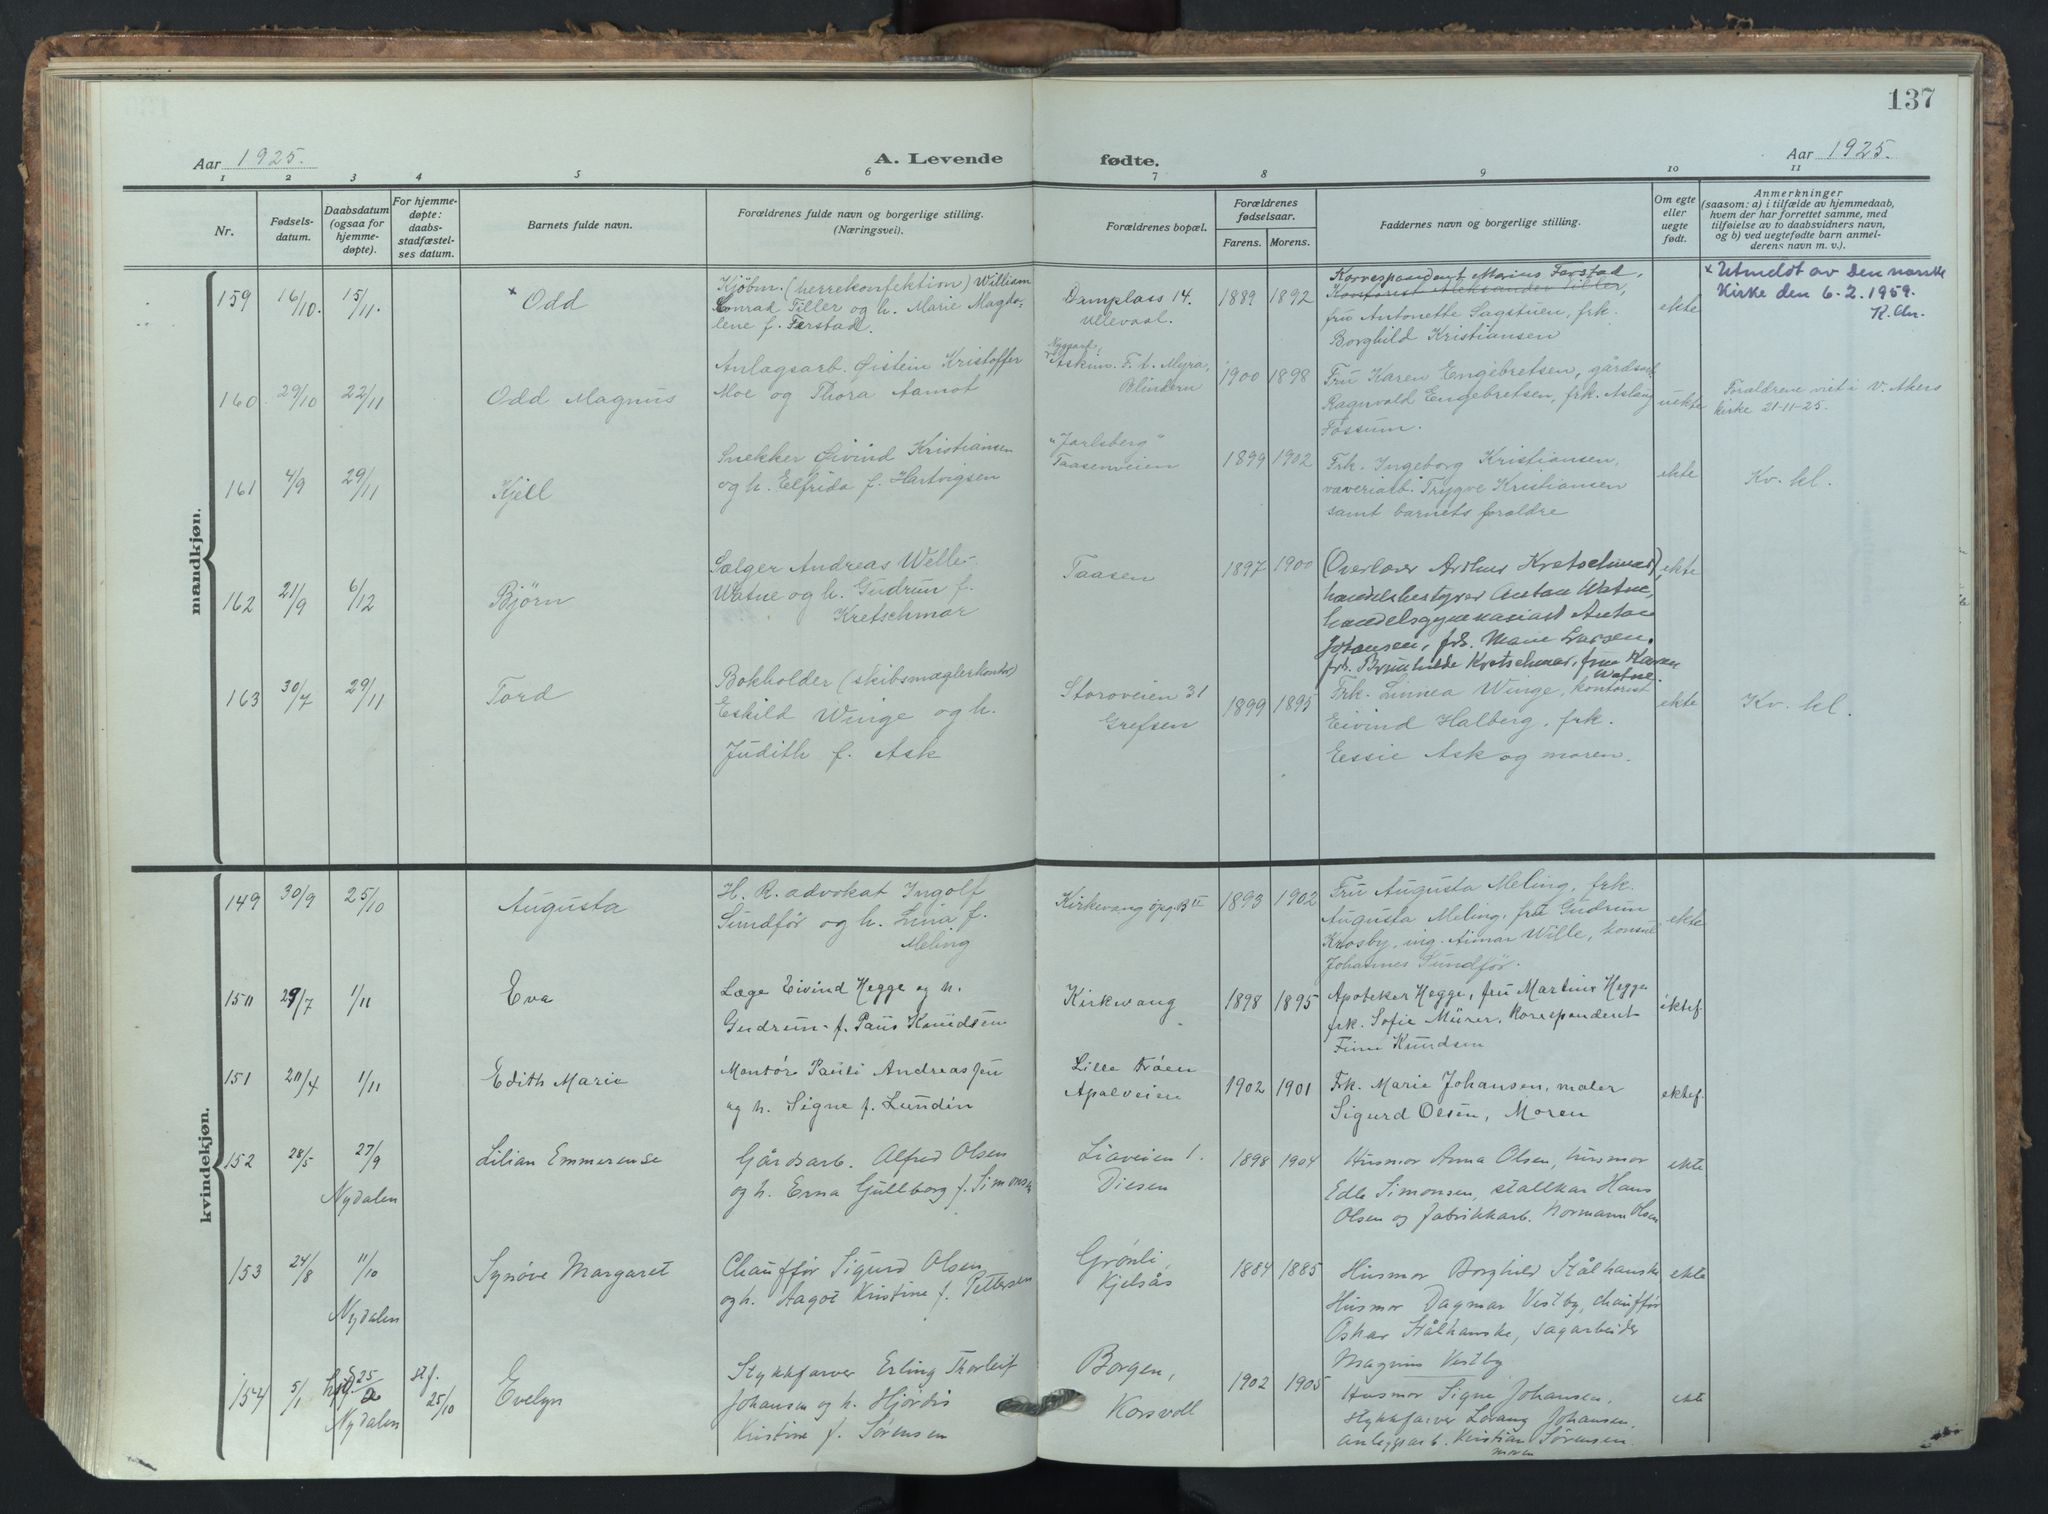 137
Aar 1925. A. Levende fødte. Aar 1925.
1 2 3 4 5 6 7 8 9 10 11
Nr.
Fødsels-
datum.
Daabsdatum
(ogsaa for
hjemme-
døpte).
For hjemme-
døpte:
daabs-
stadfæstel-
ses datum.
Barnets fulde navn.
Forældrenes fulde navn og borgerlige stilling.
(Næringsvei).
Forældrenes bopæl.
Forældrenes
fødselsaar.
Farens. Morens.
Faddernes navn og borgerlige stilling.
Om egte
eller
uegte
født.
Anmerkninger
(saasom: a) i tilfælde av hjemmedaab,
hvem der har forrettet samme, med
tilføielse av to daabsvidners navn,
og b) ved uegtefødte barn anmel-
derens navn m. v.).
mandkjøn.
159 16/10. 15/11. × Odd
Kjøbm. (herrekonfektion) William
Conrad Tiller og h. Marie Magda-
lene f. Farstad.
Damplass 14.
Ullevaal.
1889 1892
Korrespondent Marius Farstad,
Kontorist Aleksander Tiller,
fru Antonette Sagstuen, frk.
Borghild Kristiansen
ekte
× Utmeldt av Den norske
Kirke den 6.2.1959.
160. 29/10 22/11 Odd Magnus
Anlægsarb. Øistein Kristoffer
Moe og Thora Aamot
Askim. F. t. Myra,
Blindern
1900 1898
Fru Karen Engebretsen, gårdsarb.
Ragnvald Engebretsen, frk. Aslaug
Fossum.
uekte
Forældrene viet i V. Akers
kirke 21-11-25.
161 4/9 29/11 Kjell
Snekker Øivind Kristiansen
og h. Elfrida f. Hartvigsen
"Jarlsberg"
Taasenveien
1899 1902
Frk. Ingeborg Kristiansen,
væveriarb. Trygve Kristiansen
samt barnets forældre
ekte
Kv. kl.
162 21/9 6/12 Bjørn
Sælger Andreas Welle-
Watne og h. Gudrun f.
Kretschmar
Taasen
1897 1900
(Overlærer Arthur Kretschmar),
handelsbestyrer Anton Watne,
handelsgymnasiast Anton
Johansen, frk. Marie Larsen,
frk. Brunhilde Kretschmar, frue Karen
Watne.
ekte
163 30/7 29/11 Tord
Bokholder (skibsmæglerkontor)
Eskild Winge og h.
Judith f. Ask
Storoveien 31
Grefsen
1899 1895
Frk. Linnea Winge, kontorist
Eivind Halberg, frk.
Essie Ask og moren.
ekte
Kv. kl.
kvindekjøn.
149 30/9 25/10 Augusta
H. R. advokat Ingolf
Sundfør og h. Lina f.
Meling
Kirkevang opg. B II
1893 1902
Fru Augusta Meling, frk.
Augusta Meling, fru Gudrun
Krosby, ing. Aimar Wille, konsul
Johannes Sundfør.
ekte
150 29/7 1/11 Eva
Læge Eivind Hegge og h.
Gudrun f. Paus Knudsen
Kirkevang
1898 1895
Apoteker Hegge, fru Martine Hegge
frk. Sofie Mürer, Korespondent
Finn Knudsen
ektef.
151 20/4 1/11 Edith Marie
Montør Pauli Andreas Jen
og h. Signe f. Lundin
Lille Frøen
Apalveien
1902 1901
Frk. Marie Johansen, maler
Sigurd Olsen, Moren
ektef.
152 28/5 27/9 Lilian Emmerense
Nydalen
Gårdsarb. Alfred Olsen
og h. Erna Gullborg f. Simonsen
Liaveien 1.
Disen
1898 1904
Husmor Anna Olsen, husmor
Edle Simonsen, stallkar Hans
Olsen og fabrikkarb. Normann Olsen
ekte
153 24/8 11/10 Synøve Margaret
Nydalen
Chauffør Sigurd Olsen
og h. Aagot Kristine f. Pettersen
Grønli,
Kjelsås
1884 1885
Husmor Borghild Stålhanske
Husmor Dagmar Vestby, chauffør
Oskar Stålhanske, sagarbeider
Magnus Vestby
ekte
154 5/1 hjd 25/2 st f. 25/10 Evelyn
Nydalen
Stykkfarver Erling Thorleif
Johansen og h. Hjørdis
Kristine f. Sørensen
Borgen,
Korsvoll
1902 1905
Husmor Signe Johansen,
stykkfarver Lorang Johansen,
anleggsarb. Kristian Sørensen.
moren
ekte